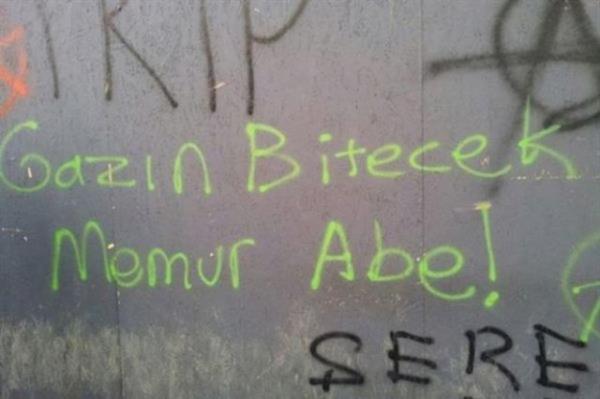 TKIP
Gazın Bitecek
Memur Abe!
SERE